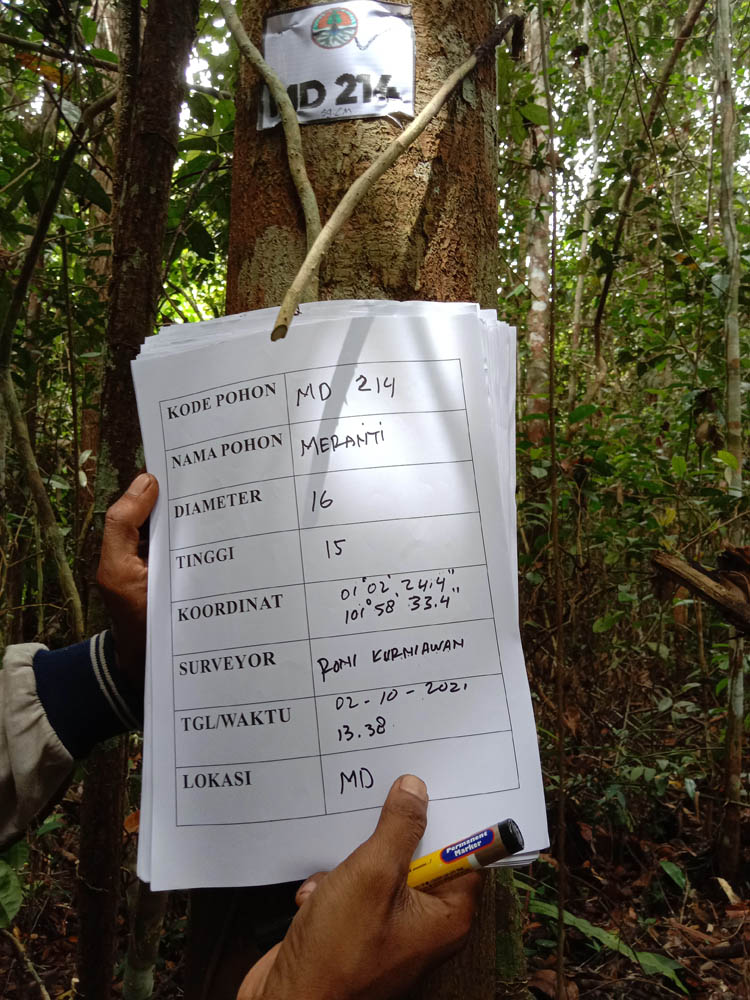 MD 214
KODE POHON MD 214
NAMA POHON MERANTI
DIAMETER 16
TINGGI 15
KOORDINAT 01°02' 24.4"
101°58' 33.4"
SURVEYOR RONI KURNIAWAN
TGL/WAKTU 02-10-2021
13.38
LOKASI MD
Permanent
Marker